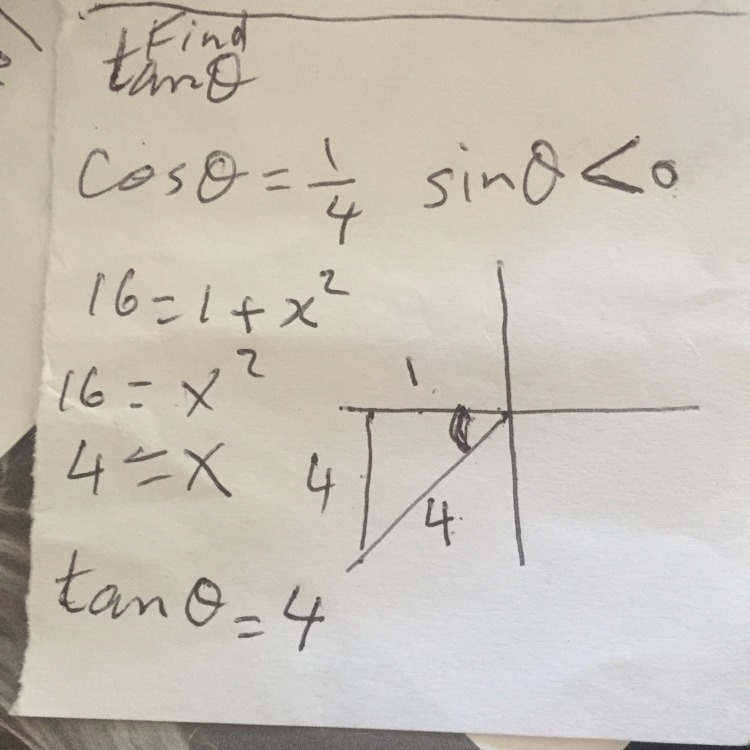 Find
tanθ
cosθ = 1/4 sinθ < 0
16 = 1 + x²
16 = x²
4 = x
1
4
4
tanθ = 4